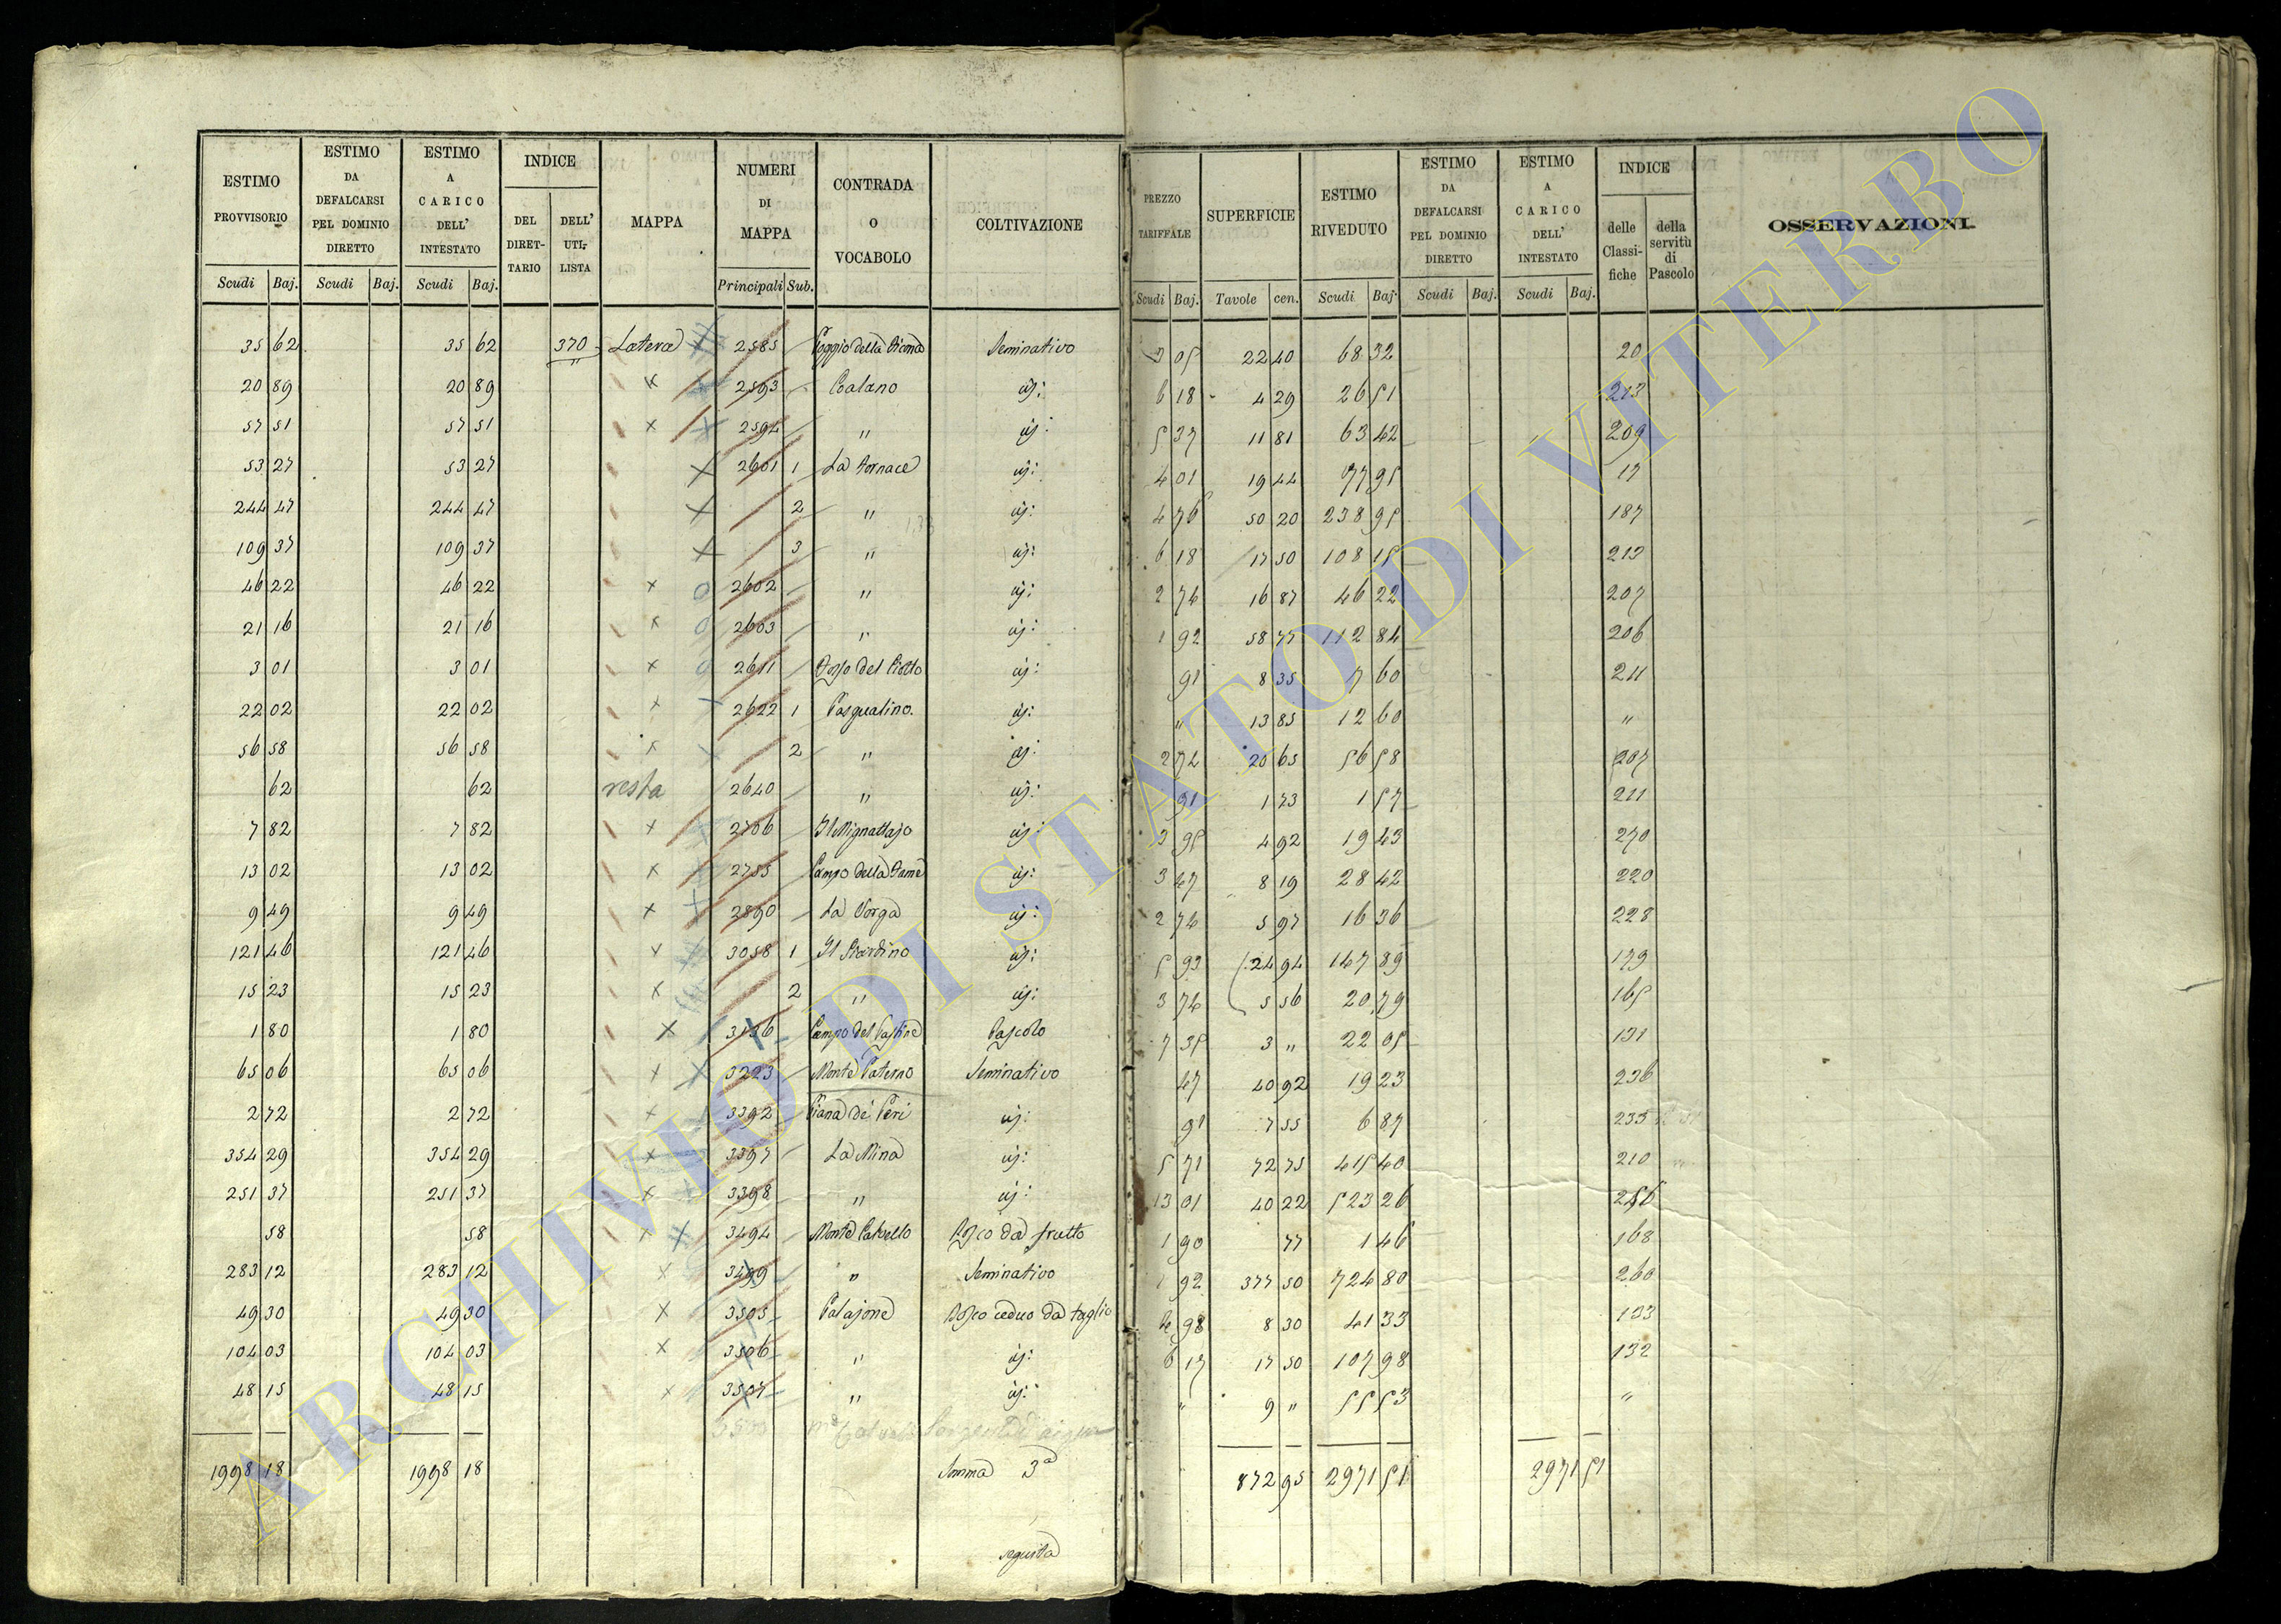 ESTIMO PROVVISORIO | ESTIMO DA DEFALCARSI PEL DOMINIO DIRETTO | ESTIMO A CARICO DELL' INTESTATO | INDICE DEL DIRETTARIO | DELL' UTILISTA | MAPPA | NUMERI DI MAPPA | CONTRADA O VOCABOLO | COLTIVAZIONE | PREZZO TARIFFALE | SUPERFICIE | ESTIMO RIVEDUTO | ESTIMO DA DEFALCARSI PEL DOMINIO DIRETTO | ESTIMO A CARICO DELL' INTESTATO | INDICE delle Classifiche | della servitù di Pascolo | OSSERVAZIONI.
Scudi Baj. | Scudi Baj. | Scudi Baj. | Principali Sub. | Scudi Baj. | Tavole cen. | Scudi Baj. | Scudi Baj. | Scudi Baj.
35 62 | 35 62 | 370 | Latera | 2585 | Poggio della | Seminativo | 3 05 | 22 40 | 68 32 | 20
20 89 | 20 89 | 2593 | Calano | id: | 6 18 | 4 29 | 26 51 | 213
57 51 | 57 51 | 2594 | " | id: | 5 37 | 11 81 | 63 42 | 209
53 27 | 53 27 | 2601 1 | La Fornace | id: | 4 01 | 19 44 | 77 95 | 17
244 47 | 244 47 | 2 | " | id: | 4 76 | 50 20 | 238 95 | 187
109 37 | 109 37 | 3 | " | id: | 6 18 | 17 50 | 108 15 | 213
46 22 | 46 22 | 2602 | " | id: | 2 74 | 16 87 | 46 22 | 207
21 16 | 21 16 | 2603 | " | id: | 1 92 | 58 77 | 112 84 | 206
3 01 | 3 01 | 2611 | Fosso del | id: | 91 | 8 35 | 7 60 | 211
22 02 | 22 02 | 2622 1 | Pasqualino. | id: | " | 13 85 | 12 60 | "
56 58 | 56 58 | 2 | " | id: | 2 74 | 20 65 | 56 58 | 207
62 | 62 | resta | 2640 | " | id: | 91 | 1 73 | 1 57 | 211
7 82 | 7 82 | 2706 | Il Mignattajo | id: | 3 95 | 4 92 | 19 43 | 270
13 02 | 13 02 | 2755 | Campo della Fame | id: | 3 47 | 8 19 | 28 42 | 220
9 49 | 9 49 | 2890 | La Vorga | id: | 2 74 | 5 97 | 16 36 | 228
121 46 | 121 46 | 3058 1 | Il Giardino | id: | 5 93 | 24 94 | 147 89 | 179
15 23 | 15 23 | 2 | " | id: | 3 74 | 5 56 | 20 79 | 165
1 80 | 1 80 | 3136 | Campo del | Pascolo | 7 35 | 3 " | 22 05 | 131
65 06 | 65 06 | 3223 | Monte Paterno | Seminativo | 47 | 40 92 | 19 23 | 236
2 72 | 2 72 | 3392 | Piana de' Peri | id: | 91 | 7 55 | 6 87 | 235
354 29 | 354 29 | 3397 | La Mina | id: | 5 71 | 72 75 | 415 40 | 210
251 37 | 251 37 | 3398 | " | id: | 13 01 | 40 22 | 523 26 | 256
58 | 58 | 3494 | Monte Calvello | Bosco da frutto | 1 90 | 77 | 1 46 | 168
283 12 | 283 12 | 3499 | " | Seminativo | 1 92 | 377 50 | 724 80 | 260
49 30 | 49 30 | 3505 | Palajone | Bosco ceduo da taglio | 4 98 | 8 30 | 41 33 | 133
104 03 | 104 03 | 3506 | " | id: | 6 17 | 17 50 | 107 98 | 132
48 15 | 48 15 | 3507 | " | id: | " | 9 " | 55 53 | "
1998 18 | 1998 18 | Somma 3a | 872 95 | 2971 51 | 2971 51
seguita
ARCHIVIO DI STATO DI VITERBO